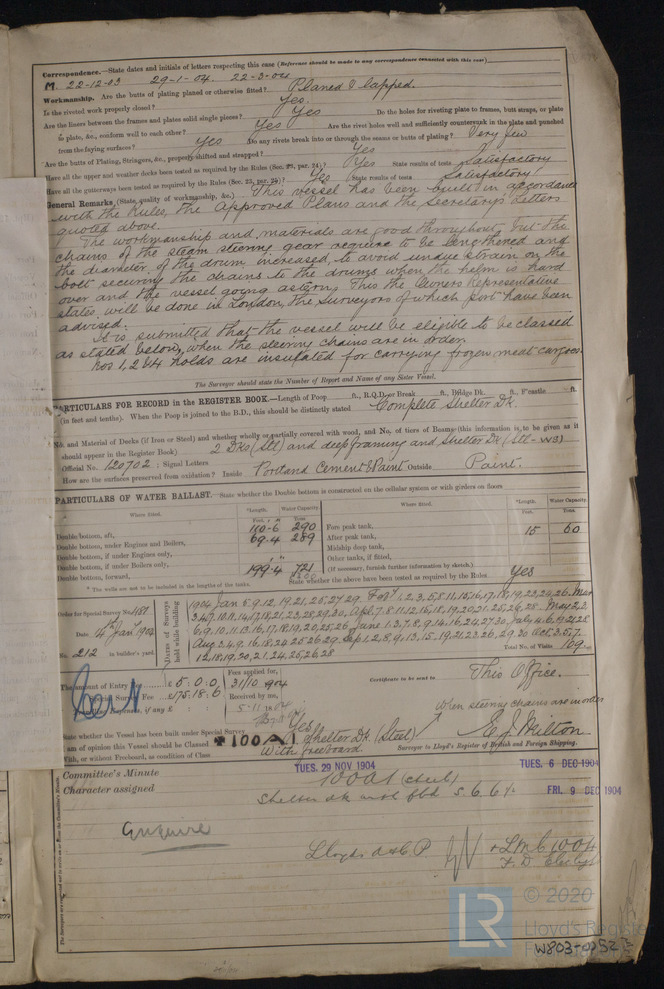 Correspondence.—State dates and initials of letters respecting this case (Reference should be made to any correspondence connected with this case)
M. 22-12-03 29-1-04. 22-3-04
Workmanship. Are the butts of plating planed or otherwise fitted? Planed & lapped.
Is the riveted work properly closed? Yes.
Are the liners between the frames and plates solid single pieces? Yes Do the holes for riveting plate to frames, butt straps, or plate
to plate, &c., conform well to each other? Yes Are the rivet holes well and sufficiently countersunk in the plate and punched
from the faying surfaces? Yes Do any rivets break into or through the seams or butts of plating? Very few
Are the butts of Plating, Stringers, &c., properly shifted and strapped? Yes
Have all the upper and weather decks been tested as required by the Rules (Sec. 29, par. 24)? Yes State results of tests Satisfactory
Have all the gutterways been tested as required by the Rules (Sec. 25, par. 24)? Yes State results of tests Satisfactory
General Remarks (State quality of workmanship, &c.) This vessel has been built in accordance
with the Rules, the Approved Plans and the Secretary's Letters
quoted above.
The workmanship and materials are good throughout, but the
chains of the steam steering gear require to be lengthened and
the diameter of the drum increased, to avoid undue strain on the
bolt securing the chains to the drums when the helm is hard
over and the vessel going astern. This the Owners Representative
states, will be done in London, the Surveyors of which port have been
advised.
It is submitted that the vessel will be eligible to be classed
as stated below, when the steering chains are in order.
Nos 1, 2 & 4 holds are insulated for carrying frozen meat cargoes.
The Surveyor should state the Number of Report and Name of any Sister Vessel.
PARTICULARS FOR RECORD in the REGISTER BOOK.—Length of Poop ft., R.Q.D. or Break ft., Bridge Dk. ft., F'castle ft.
(in feet and tenths). When the Poop is joined to the B.D., this should be distinctly stated Complete Shelter Dk.
No. and Material of Decks (if Iron or Steel) and whether wholly or partially covered with wood, and No. of tiers of Beams (this information is to be given as it
should appear in the Register Book) 2 Dks (Stl) and deep framing and Shelter Dk (Stl - W3)
Official No. 120702 ; Signal Letters
How are the surfaces preserved from oxidation? Inside Portland Cement & Paint Outside Paint.
PARTICULARS OF WATER BALLAST.—State whether the Double bottom is constructed on the cellular system or with girders on floors
Where fitted. *Length. Water Capacity. Where fitted. *Length. Water Capacity.
Feet. Tons. Feet. Tons
Double bottom, aft, 150-6 290 Fore peak tank,
Double bottom, under Engines and Boilers, 69.4 289 After peak tank, 15 50
Double bottom, if under Engines only, Midship deep tank,
Double bottom, if under Boilers only, Other tanks, if fitted,
Double bottom, forward, 199.4 721 (If necessary, furnish further information by sketch.)
* The wells are not to be included in the lengths of the tanks. State whether the above have been tested as required by the Rules yes
Order for Special Survey No. 481
Date 4th Jan 1904
No. 212 in builder's yard.
Dates of Surveys held while building
1904 Jan 5.9.12.19.21.25.27.29. Feb 1.2.3.5.8.11.15.16.17.18.19.23.24.26. Mar
3.4.7.10.11.14.17.18.21.23.28.29.30. Apl 7.8.11.12.15.18.19.20.21.25.26.28. May 2.3
6.9.10.11.13.16.17.18.19.20.25.26 June 1.3.7.8.9.14.16.24.27.30. July 4.6.19.21.28
Aug 3.4.9.16.18.24.25.26.29. Sep 1.2.8.9.13.15.19.21.23.26.29.30 Oct 3.5.7.
12.18.19.20.21.24.25.26.28
Total No. of Visits 109
The amount of Entry Fee £ 5.0.0 Fees applied for, 31/10 1904
Special Survey Fee £178.18.6 Received by me,
Travelling Expenses, if any £ 5.11.1904
Certificate to be sent to This Office.
State whether the Vessel has been built under Special Survey Yes
I am of opinion this Vessel should be Classed ✠100A1 Shelter Dk. (Steel)
With, or without Freeboard, as condition of Class With freeboard
when steering chains are in order
E. J. Milton
Surveyor to Lloyd's Register of British and Foreign Shipping.
Committee's Minute TUES. 29 NOV 1904 TUES. 6 DEC 1904
Character assigned 100A1 (steel) FRI. 9 DEC 1904
Shelter dk with fbd
Enquire
Lloyds A & C.P. + LMC 10.04
© 2020
LR
Lloyd's Register
W803-0252